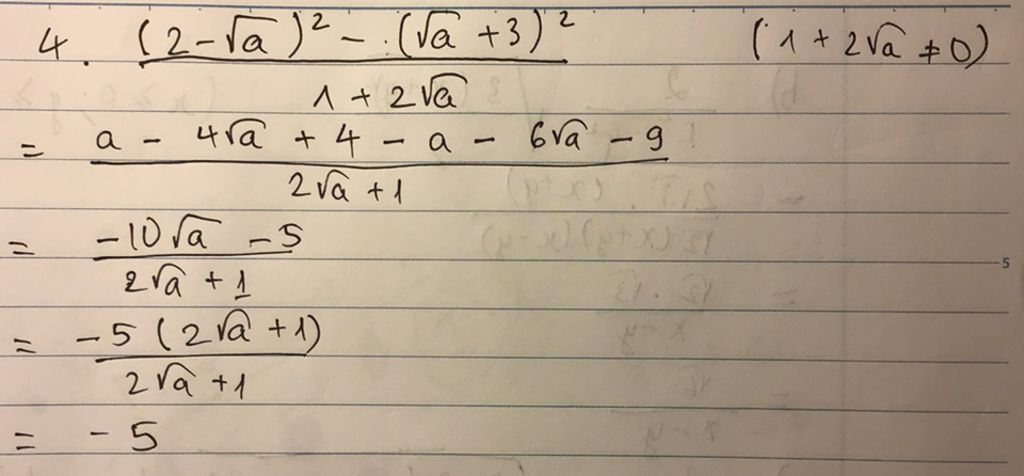 4. ((2-√a)² - (√a+3)²)/(1+2√a) (1+2√a≠0)
= (a - 4√a + 4 - a - 6√a - 9)/(2√a+1)
= (-10√a - 5)/(2√a+1)
= (-5(2√a+1))/(2√a+1)
= -5
5